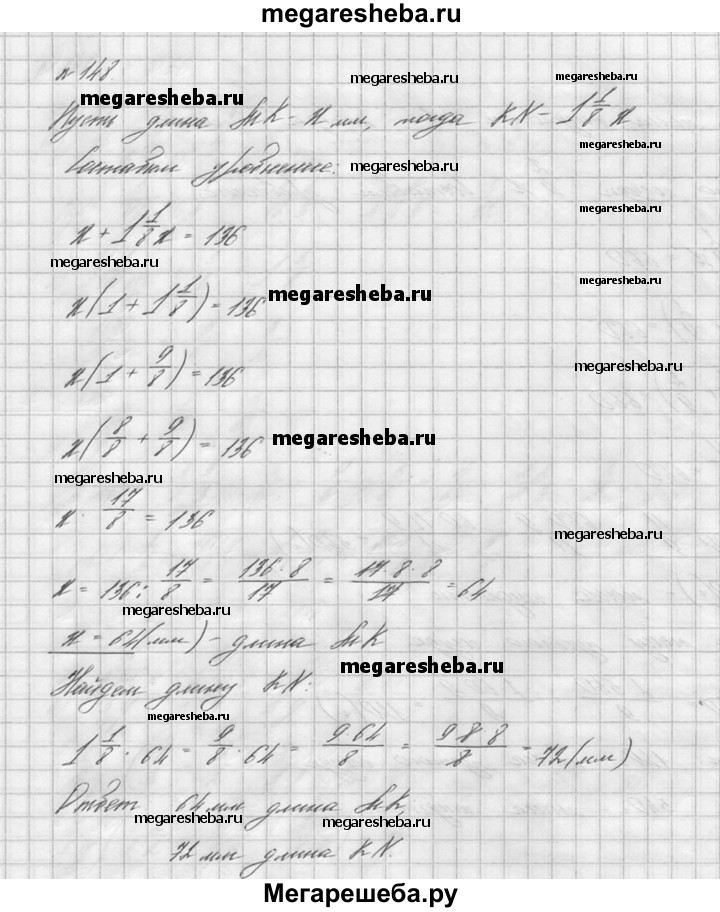 megaresheba.ru
№ 148
megaresheba.ru megaresheba.ru
megaresheba.ru
Пусть длина МК - x мм, тогда KN - 1 1/8 x
megaresheba.ru
Составим уравнение: megaresheba.ru
x + 1 1/8 x = 136
megaresheba.ru
megaresheba.ru
x(1 + 1 1/8) = 136
megaresheba.ru megaresheba.ru
x(1 + 9/8) = 136
megaresheba.ru
x(8/8 + 9/8) = 136
megaresheba.ru
megaresheba.ru
x · 17/8 = 136
megaresheba.ru
x = 136 : 17/8 = 136 · 8/17 = 17 · 8 · 8/17 = 64
megaresheba.ru
x = 64 (мм) - длина МК
megaresheba.ru
Найдем длину KN:
megaresheba.ru
1 1/8 · 64 = 9/8 · 64 = 9 64/8 = 9 8 8/8 = 72 (мм)
Ответ 64 мм длина МК,
megaresheba.ru megaresheba.ru
72 мм длина KN.
Мегарешеба.ру